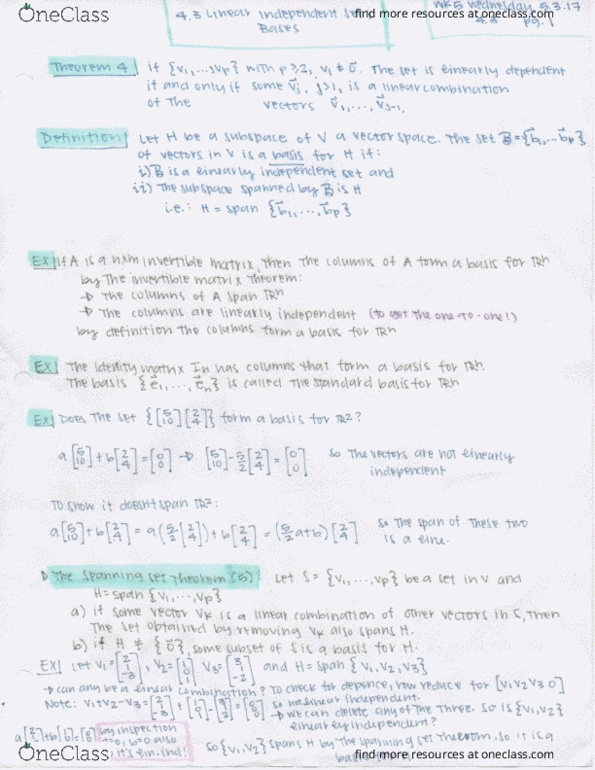 OneClass
find more resources at oneclass.com
4.3 Linear Independent
Bases
WK5 Wednesday 5.3.17
4.3 pg. 1
find more resources at oneclass.com
Theorem 4 if {v₁,...,vp} with p ≥ 2, v₁ ≠ 0⃗. The set is linearly dependent
if and only if some v⃗j, j>1, is a linear combination
of the vectors v⃗₁,...,v⃗j-1.
Definition! Let H be a subspace of V a vector space. The set B={b⃗₁,...b⃗p}
of vectors in V is a basis for H if:
i) B is a linearly independent set and
ii) The subspace spanned by B is H
i.e.: H = span {b⃗₁,...,b⃗p}
EX| If A is a nxn invertible matrix, then the columns of A form a basis for Rn
by the invertible matrix theorem:
→ the columns of A span Rn
→ the columns are linearly independent (to get the one-to-one!)
by definition the columns form a basis for Rn
EX| The Identity matrix In has columns that form a basis for Rn.
The basis {e⃗₁,...,e⃗n} is called the standard basis for Rn
EX| Does the set {[5 10][2 4]} form a basis for R²?
a[5 10]+b[2 4]=[0 0] → [5 10]-5/2[2 4]=[0 0] so the vectors are not linearly
independent
To show it doesn't span R²:
a[5 10]+b[2 4] = a(5/2[2 4])+b[2 4] = (5/2a+b)[2 4] so the span of these two
is a line.
The Spanning set Theorem (5)! Let S={v₁,...,vp} be a set in V and
H=span {v₁,...,vp}
a) if some vector vk is a linear combination of other vectors in S, then
the set obtained by removing vk also spans H.
b) if H ≠ {0⃗}, some subset of S is a basis for H.
EX| Let v₁=[2 1 -3], v₂=[1 0 1] v₃=[3 1 -2] and H=span {v₁,v₂,v₃}
→ can any be a linear combination? To check for depence, row reduce for [v₁ v₂ v₃ 0]
Note: v₁+v₂-v₃= so not linear independent.
→ we can delete any of the three. So is {v₁,v₂}
linearly independent?
by inspection
a=0, b=0 also
it's lin. ind!
so {v₁,v₂} spans H by the spanning set theorem. So it is a
OneClass
find more resources at oneclass.com
find more resources at oneclass.com